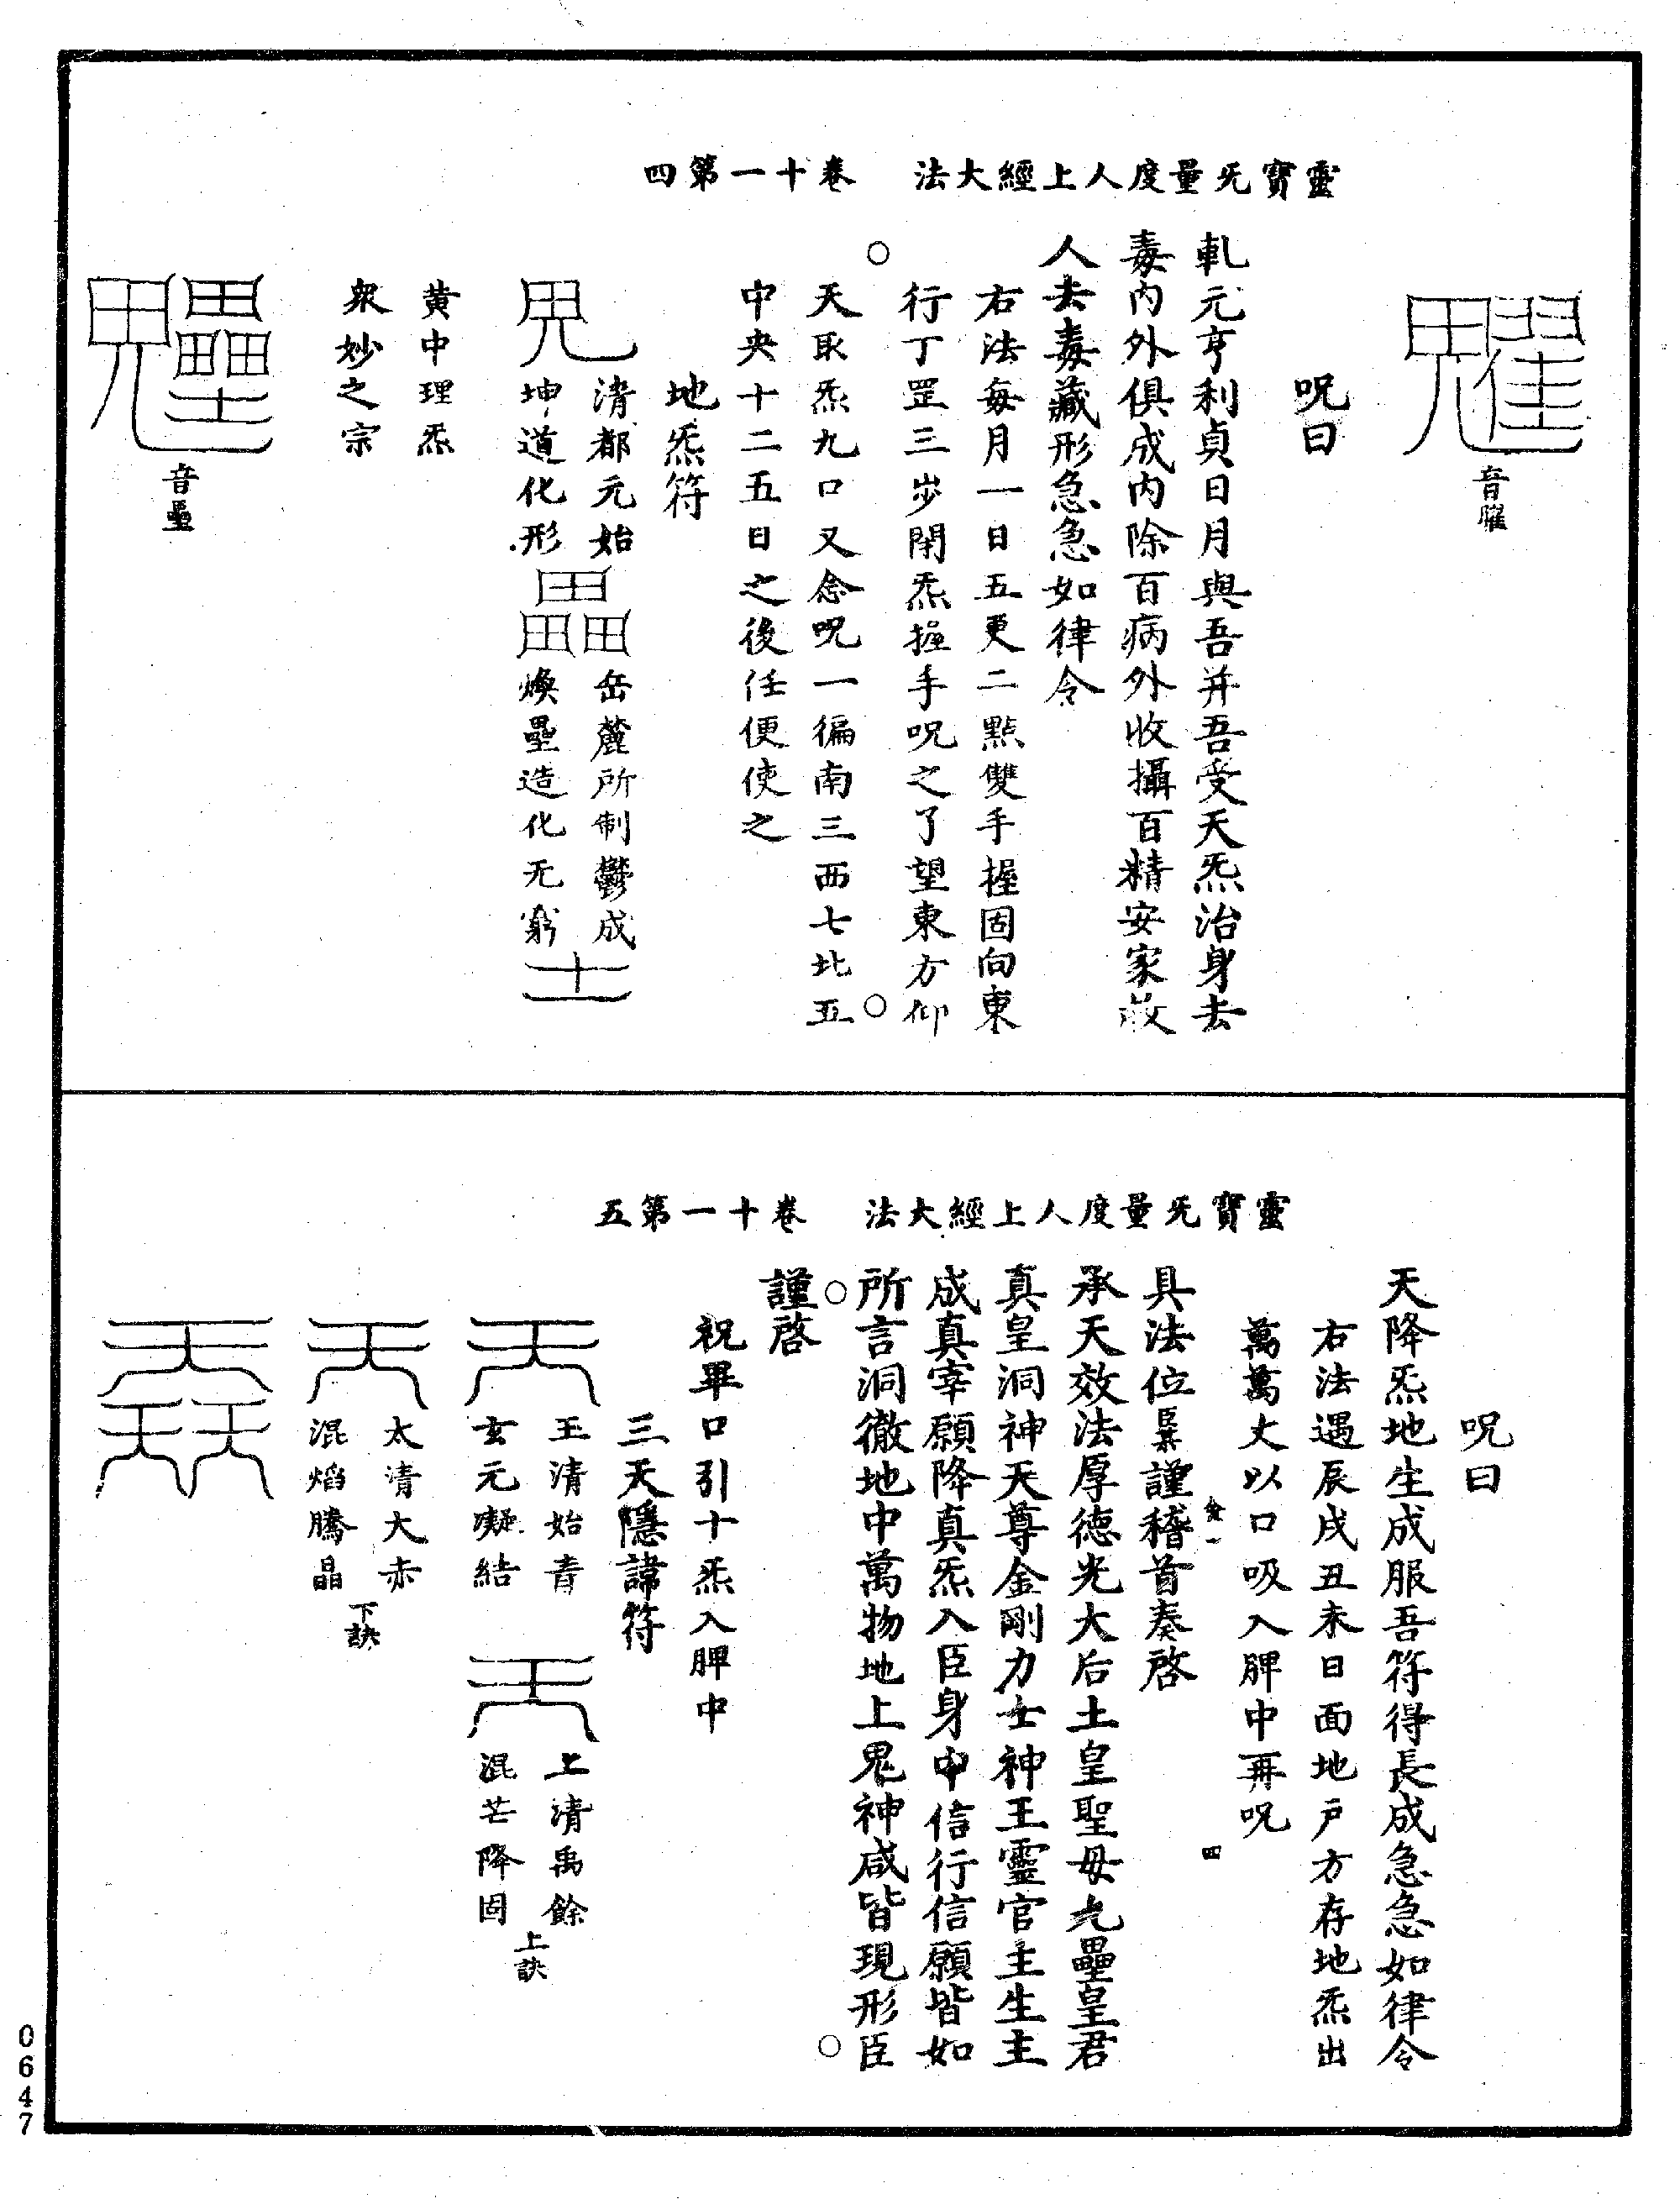 靈寶旡量度人上經大法　卷十一第四
音䂄
呪曰
軋元亨利貞日月與吾并吾受天炁治身去
毒内外俱成内除百病外收攝百精安家故
人去毒藏形急急如律令
右法每月一日五更二點雙手握固向東
行丁罡三步閉炁握手呪之了望東方仰
天取炁九口又念呪一徧南三西七北五
中央十二五日之後任便使之
地炁符
清都元始
坤道化形
畾
岳麓所制鬱成
煥壘造化无窮
土
黄中理炁
衆妙之宗
音壘
靈寶旡量度人上經大法　卷十一第五
呪曰
天降炁地生成服吾符得長成急急如律令
右法遇辰戌丑未日面地户方存地炁出
萬萬丈以口吸入脾中再呪
四
具法位臣某謹稽首奏啓
承天效法厚德光大后土皇聖母允壘皇君
真皇洞神天尊金剛力士神王靈官主生主
成真宰願降真炁入臣身中信行信願皆如
所言洞徹地中萬物地上鬼神咸皆現形臣
謹啓
祝畢口引十炁入脾中
三天隱諱符
天
玉清始青
玄元凝結
天
上清禹餘
混芒降固
上訣
天
太清大赤
混焰騰晶
下訣
0647